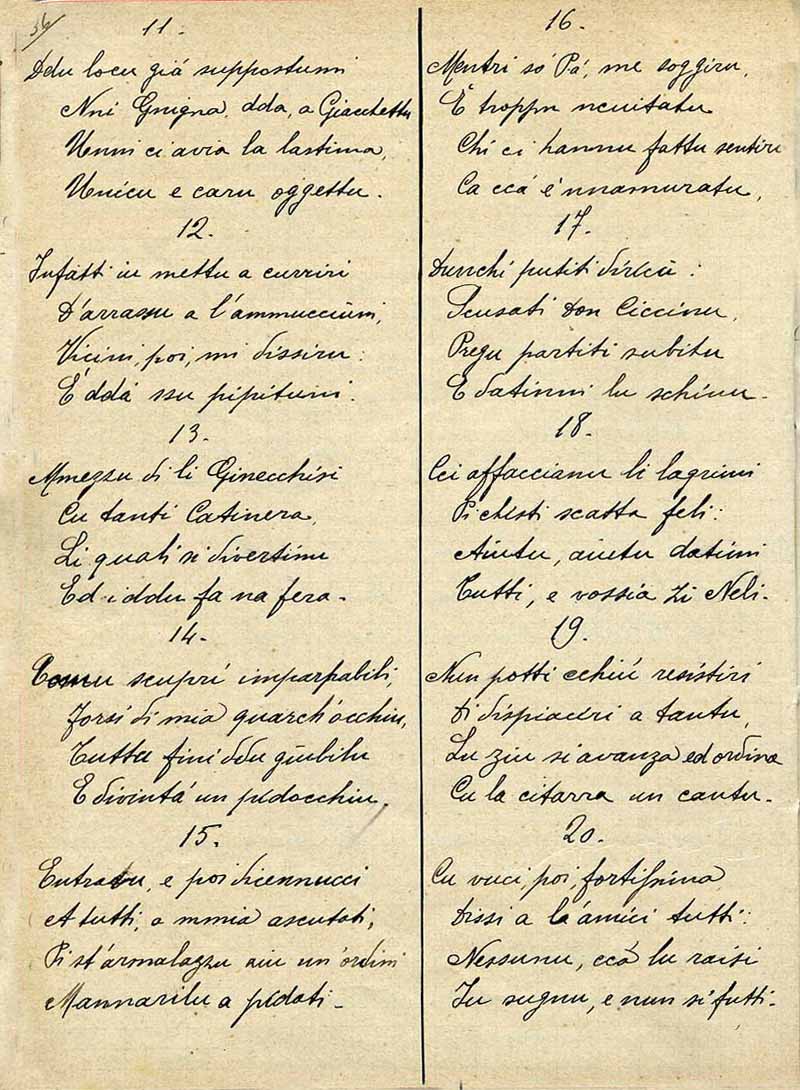 34
11.
Ddu locu giá suppostumi
Nni Gnigna, dda, a Giacchettu
Unni ci avia la lastima,
Unicu e caru oggettu.
12.
Infatti iu mettu a curriri
D'arrassu a l'ammucciuni,
Vicini, poi, mi dissiru:
É ddá ssu pipituni.
13.
Mmezzu di li Ginecchisi
Cu tanti Catinera,
Li quali si divertinu
Ed iddu fa na fera.
14.
Comu scuprí imparpabili,
Forsi di mia quarch'occhiu,
Tuttu finí ddu giubilu
E divintá un pidocchiu.
15.
Entratu, e poi dicennucci
A tutti, a mmia ascutati,
Pi st'armalazzu aiu un'ordini
Mannarilu a pidati.
16.
Mentri só Pá, me soggiru,
É troppu ncuitatu
Chi ci hannu fattu sentiri
Ca ccá é 'nnamuratu,
17.
Dunchi putiti diricci:
Scusati Don Ciccinu,
Pregu partiti subitu
E datinni lu schinu.
18.
Cci affaccianu li lagrimi
Pi chisti scatta feli:
Aiutu, aiutu datimi
Tutti, e vossia Zi Neli.
19.
Nun potti cchiú resistiri
Di dispiaciri a tantu,
Lu ziu si avanza ed ordina
Cu la citarra un cantu.
20.
Cu vuci, poi, fortissima
Dissi a l'ámici tutti:
Nessunu, ccá lu raisi
Iu sugnu, e nun si futti.